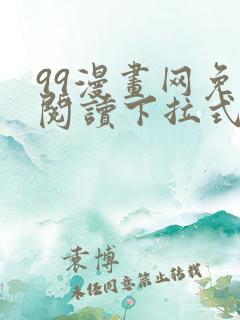 99漫畫网免
閱讀下拉式
袁博
未经同意禁止转载